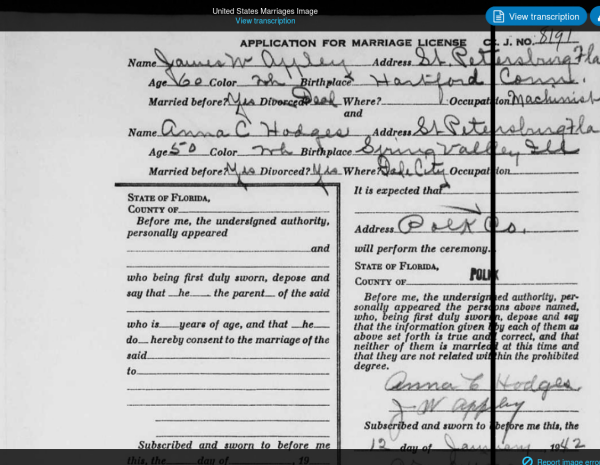 United States Marriages Image
View transcription
View transcription
APPLICATION FOR MARRIAGE LICENSE C. J. NO. 8191
Name James W Appley Address St. Petersburg Fla
Age 60 Color Wh Birthplace Hartford Conn.
Married before? Yes Divorced Dead Where? Occupation Machinist
and
Name Anna C Hodges Address St Petersburg Fla
Age 50 Color Wh Birthplace Spring Valley Ill
Married before? Yes Divorced? Yes Where? Dade City Occupation
It is expected that
STATE OF FLORIDA,
COUNTY OF
Before me, the undersigned authority,
personally appeared
and
who being first duly sworn, depose and
say that he the parent of the said
who is years of age, and that he
do hereby consent to the marriage of the
said
to
Subscribed and sworn to before me
this, the day of 19
Address Polk Co.
will perform the ceremony.
STATE OF FLORIDA,
COUNTY OF POLK
Before me, the undersigned authority, per-
sonally appeared the persons above named,
who, being first duly sworn, depose and say
that the information given by each of them as
above set forth is true and correct, and that
neither of them is married at this time and
that they are not related within the prohibited
degree.
Anna C Hodges
J W Appley
Subscribed and sworn to before me this, the
12 day of January, 1942
Report image error